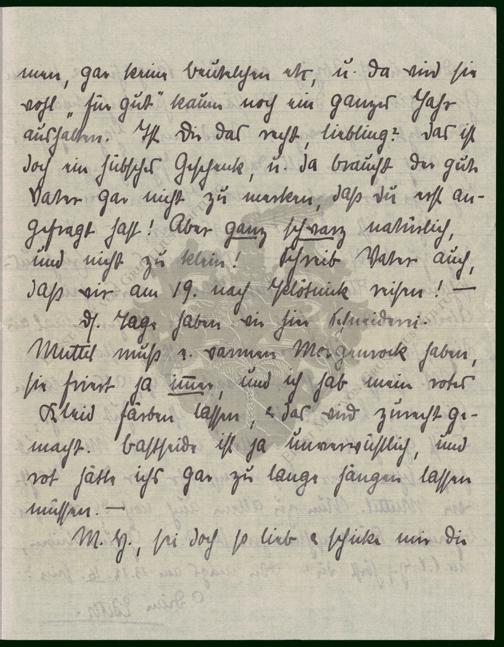 men, gar keine beutelchen etc, u. da wird sie
wohl „für gut" kaum noch ein ganzes Jahr
aushalten. Ist Dir das recht, liebling? das ist
doch ein hübsches Geschenk, u. da braucht der gute
Vater gar nicht zu merken, daß du erst an-
gefragt hast! Aber ganz schwarz natürlich,
und nicht zu klein! Schreib Vater auch,
daß wir am 19. nach reisen! —
ds. Tage haben wir hier Schneiderei.
Muttel muß e. warmen Morgenrock haben,
sie friert ja immer, und ich hab mein rotes
Kleid färben lassen, & das wird zurecht ge-
macht. bastseide ist ja unverwüstlich, und
rot hätte ichs gar zu lange hängen lassen
müssen. —
M. H., sei doch so lieb & schicke mir die